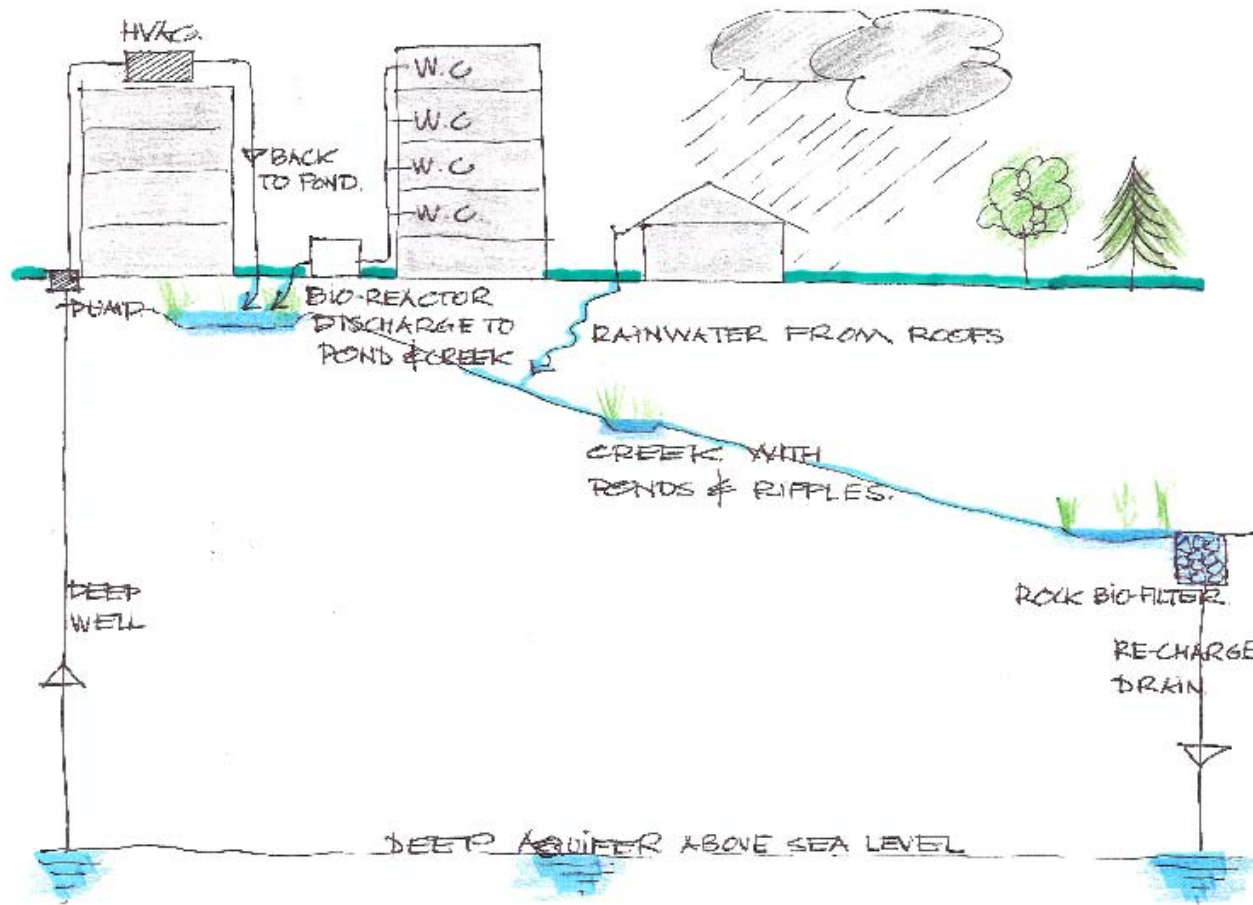 HVAC.
W.C
W.C
W.C
W.C.
BACK
TO POND.
PUMP
BIO-REACTOR
DISCHARGE TO
POND & CREEK
RAINWATER FROM ROOFS
CREEK WITH
PONDS & RIFFLES.
DEEP
WELL
ROCK BIO-FILTER
RE-CHARGE
DRAIN
DEEP AQUIFER ABOVE SEA LEVEL